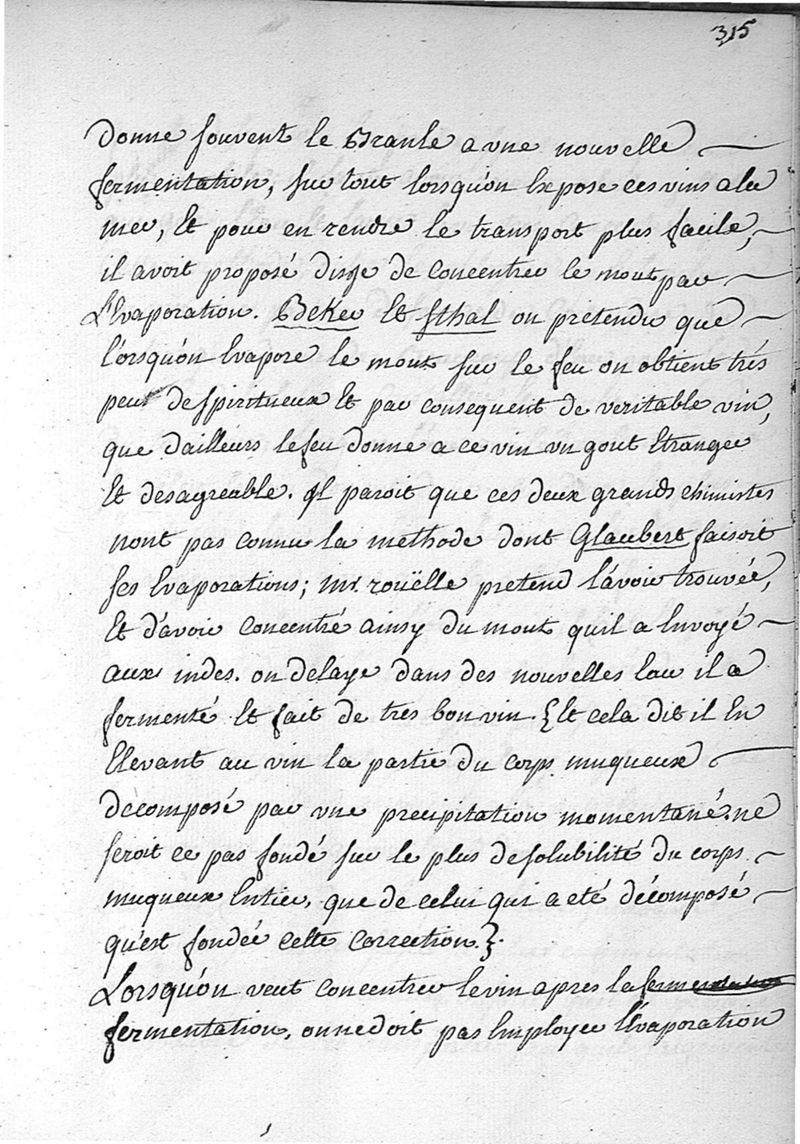 315
donne souvent le Branle a vne nouvelle
fermentation, sur tout lorsqu'on Expose ces vins a la
mer, Et pour en rendre le transport plus facile,
il avoit proposé disje de concentrer le mout par
L'Evaporation. Beker Et Sthal on pretendu que
lorsqu'on Evapore le mout sur le feu on obtient trés
peu de spiritueux Et par consequent de veritable vin,
que d'ailleurs le feu donne a ce vin vn gout Etranger
Et desagreable. Il paroit que ces deux grands chimistes
nont pas connu la methode dont Glaubert faisoit
ses Evaporations; Mr. rouëlle pretend l'avoir trouvée,
Et d'avoir concentré ainsy du mout qu'il a Envoyé
aux indes. on delaye dans des nouvelles Eau il a
fermenté Et fait de tres bon vin. {Et cela dit il En
Elevant au vin la partie du corps muqueux
decomposé par vne precipitation momentané. ne
seroit ce pas fondé sur le plus de solubilité du corps
muqueux Entier, que de celui qui a eté décomposé
qu'est fondée cette correction.}.
Lorsqu'on veut concentrer le vin apres la
fermentation, on ne doit pas Employer l'Evaporation